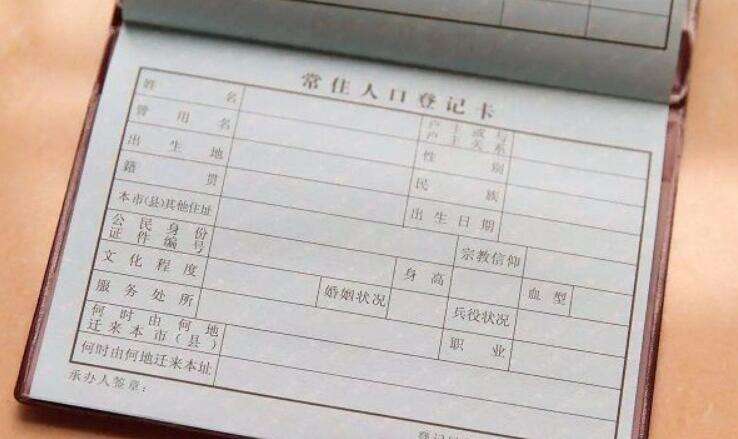 常住人口登记卡
姓名 户主或与户主关系
曾用名 性别
出生地 民族
籍贯 出生日期
本市(县)其他住址 宗教信仰
公民身份证件编号 身高 血型
文化程度 婚姻状况 兵役状况
服务处所 职业
何时由何地迁来本市(县)
何时由何地迁来本址
承办人签章：